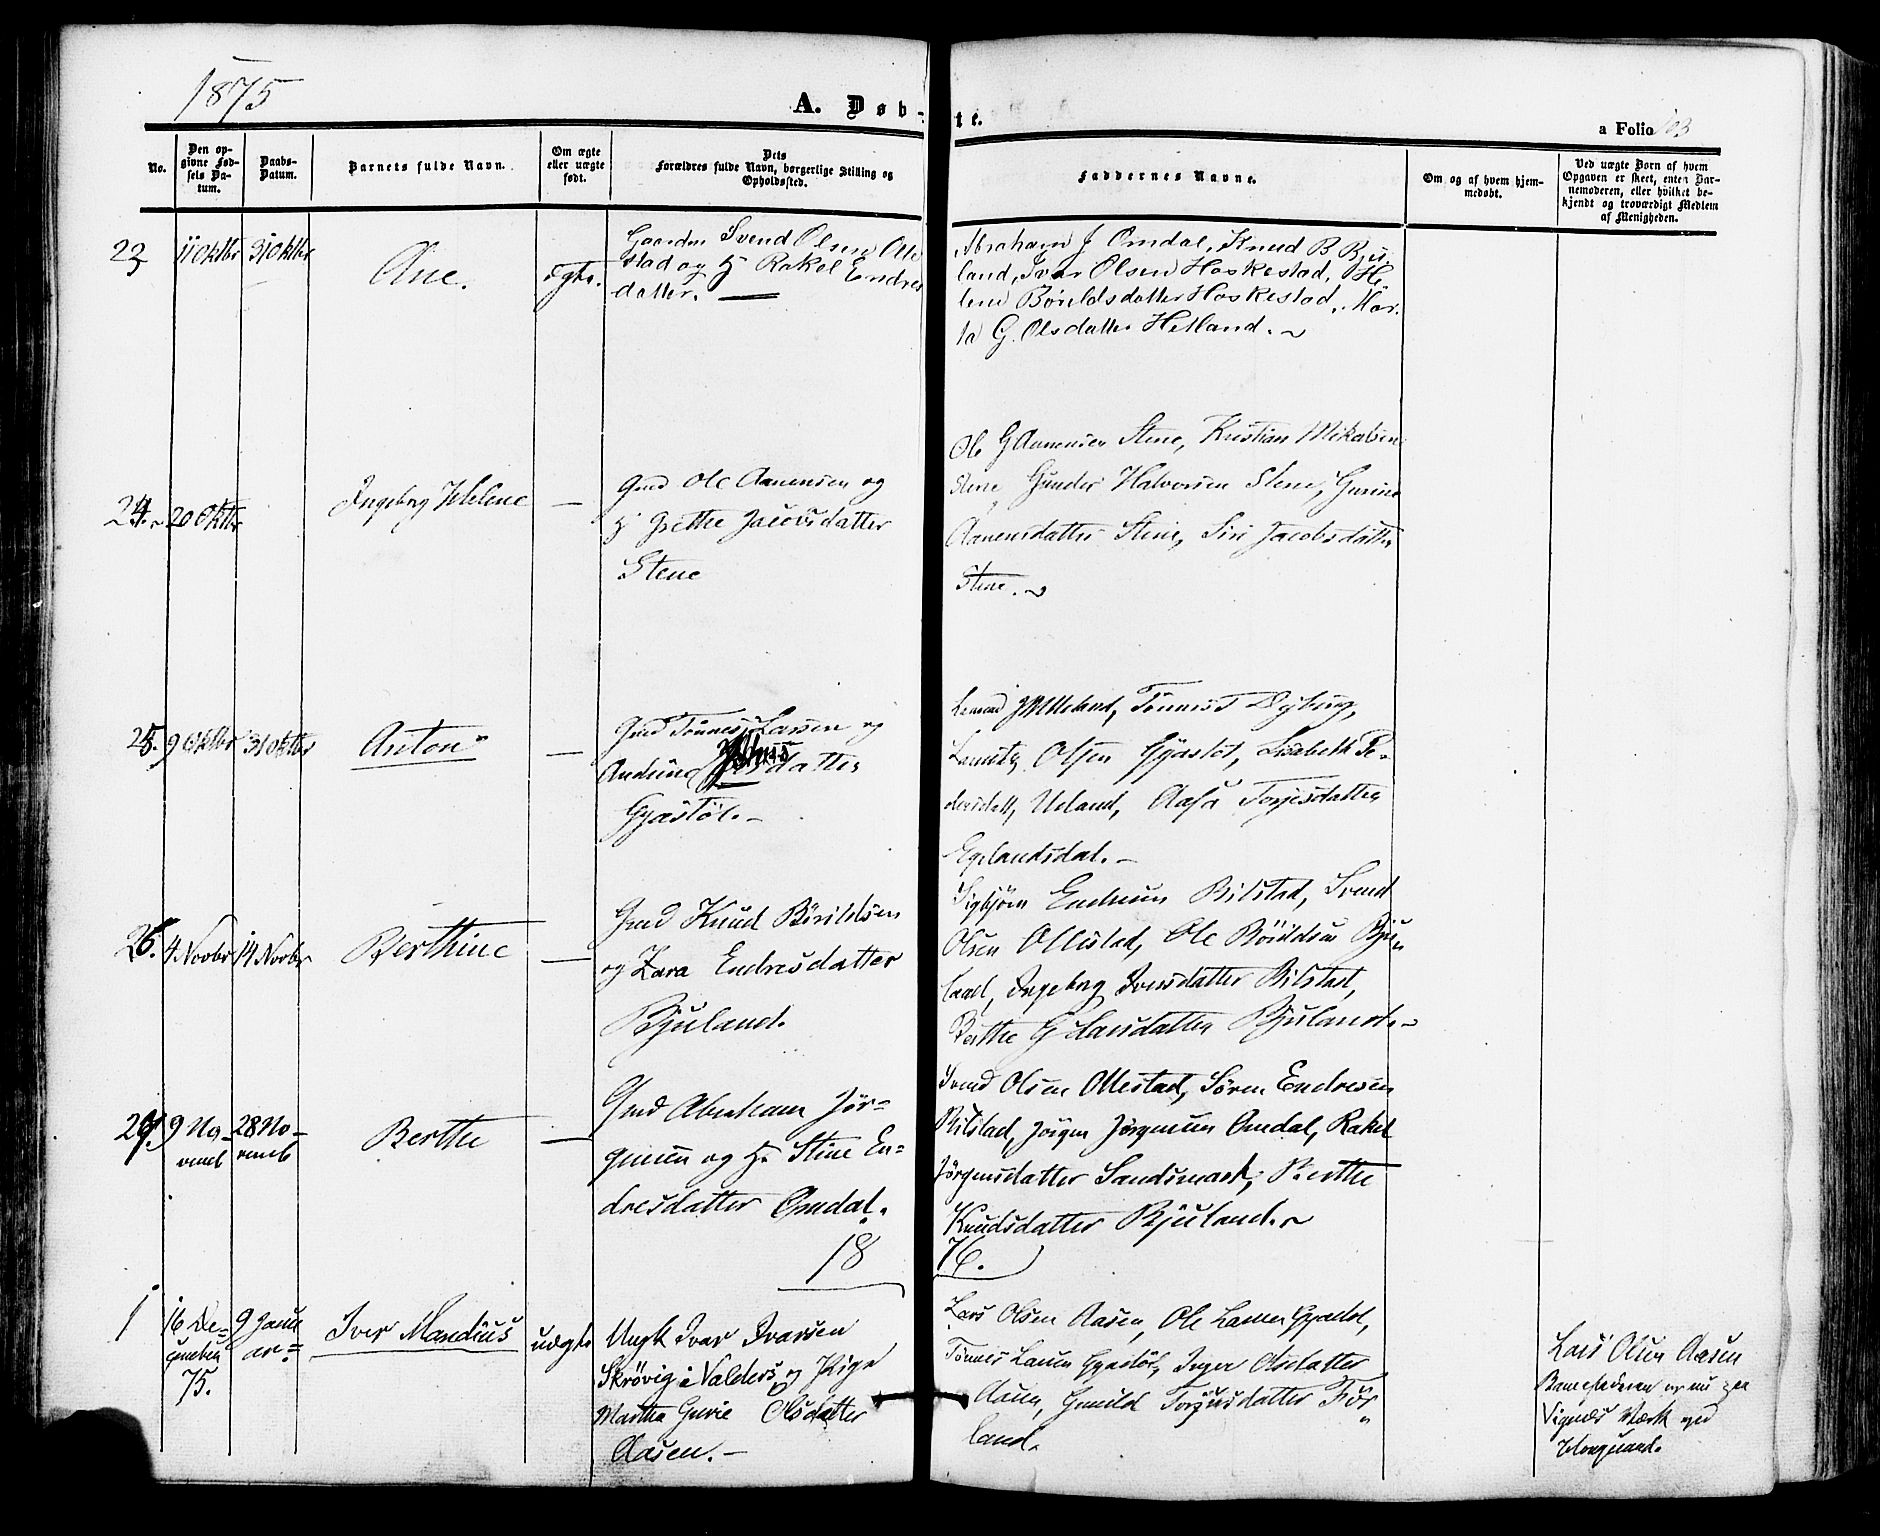 1875
A. Døb-te.
a Folio 103
No.
Den op-
givne Fød-
sels Da-
tum.
Daabs-
Datum.
Barnets fulde Navn.
Om ægte
eller uægte
født.
Dets
Forældres fulde Navn, borgerlige Stilling og
Opholdssted.
Faddernes Navne.
Om og af hvem hjem-
medøbt.
Ved uægte Born af hvem
Opgaven er skeet, enten Bar-
nemoderen, eller hvilket be-
kjendt og troværdigt Medlem
af Menigheden.
23
11 Oktbr
31 Oktbr
Ane.
Ægte.
Gaardm Svend Olsen Olle
stad og H. Rakel Endres
datter. —
Abraham J Omdal, Knud B Bju
land, Ivar Olsen Haskestad, He
lene Børildsdatter Haskestad, Mar
ta G. Olsdatter Hetland.
24.
20 Oktbr
Ingeborg Helene
—
Gmd Ole Aanensen og
H. Grethe Jacobsdatter
Stene
Ole G Aanensen Stene, Kristian Mikalsen
Stene Gunder Halvorsen Stene, Gurine
Aanensdatter Stene, Siri Jacobsdatter
Stene.
25.
9 Oktbr
31 Oktbr
Anton
—
Gmd Tønnes Larsen og
Andrine datter
Gyastøl. —
Tønnes T Dybing,
Lauritz Olsen Gyastøl, Lisabeth Pe-
dersdatt, Ueland, Aasa Torjesdatter
Egelandsdal. —
26.
4 Novbr
14 Novbr
Berthine
—
Gmd Knud Børildsen
og Zara Endresdatter
Bjuland.
Sigbjørn Endresen Bilstad, Svend
Olsen Ollestad, Ole Børildsen Bju
land, Ingeborg Iversdatter Bilstad,
Berthe G Larsdatter Bjuland.
27.
9 No-
vemb
28 No-
vemb
Berthe
—
Gmd Abraham Jør-
gensen og H. Stine En-
dresdatter Omdal.
Svend Olsen Ollestad, Søren Endresen
Bilstad, Jörgen Jørgensen Omdal, Rakel
Jørgensdatter Sandsmark, Berthe
Knudsdatter Bjuland.
18
76.
1
16 De-
cember
75.
9 Janu
ar
Iver Mandius
uægte
Ungk Ivar Ivarsen
Skrøvig i Valders og Pige
Martha Gurie Olsdatter
Aasen. —
Lars Olsen Aasen, Ole Larsen Gyadal,
Tønnes Larsen Gyastøl, Inger Olsdatter
Aasen, Gunild Torjusdatter Før
land.
Lars Olsen Aasen
Barnefaderen er nu paa
Vignæs Værk ved
Haugesund.